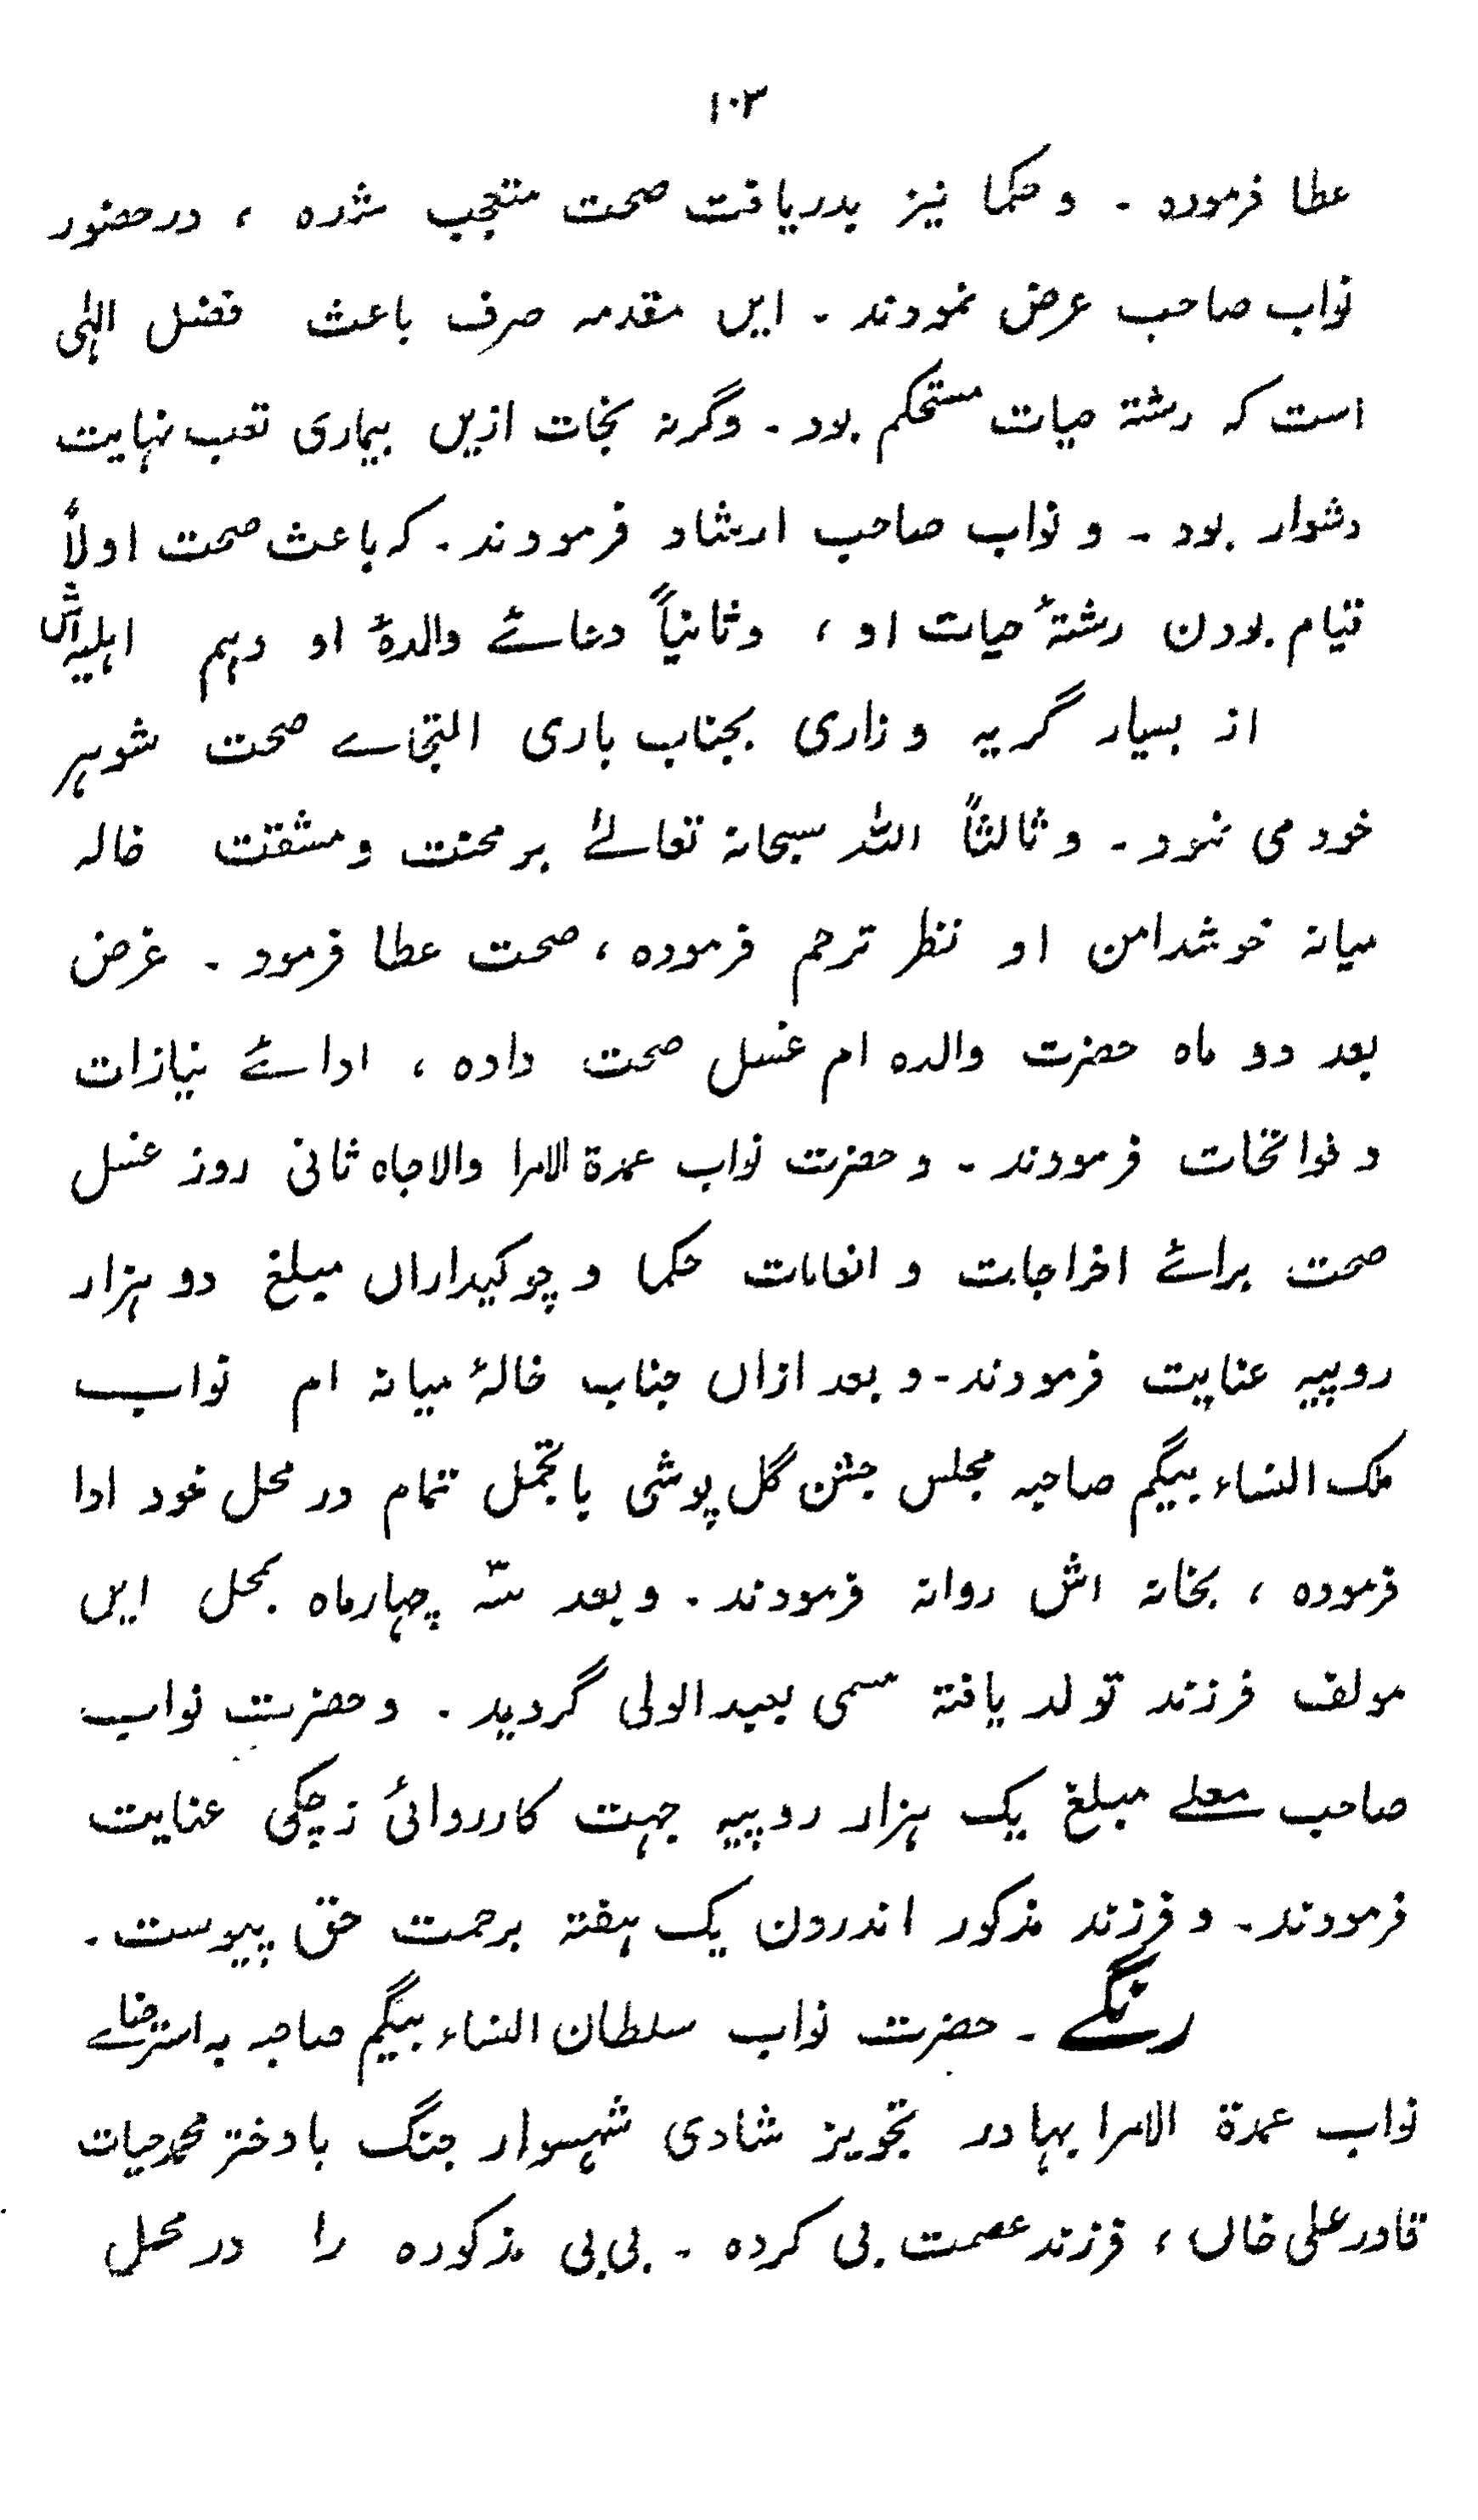 ۱۰۳
عطا فرمودہ ۔ و حکما نیز بدریافت صحت متعجب شدہ ، در حضور
نواب صاحب عرض نمودند ۔ ایں مقدمہ صرف باعث فضل الٰہی
است کہ رشتۂ حیات مستحکم بود ۔ وگرنہ نجات ازیں بیماری تعب نہایت
دشوار بود ۔ و نواب صاحب ارشاد فرمودند ۔ کہ باعث صحت اولاً
قیام بودن رشتۂ حیات او ، و ثانیاً دعائے والدۂ او وہم اہلیہ اش
از بسیار گریہ و زاری بجناب باری التجاے صحت شوہر
خود می نمود ۔ و ثالثاً اللہ سبحانہ تعالےٰ بر محنت و مشقت خالہ
میانہ خوشدامن او نظر ترحم فرمودہ ، صحت عطا فرمود ۔ غرض
بعد دو ماہ حضرت والدہ ام غسل صحت دادہ ، ادائے نیازات
و فواتحات فرمودند ۔ و حضرت نواب عمدۃ الامرا والاجاہ ثانی روز غسل
صحت برائے اخراجات و انعامات حکما و چوکیداراں مبلغ دو ہزار
روپیہ عنایت فرمودند ۔ و بعد ازاں جناب خالۂ میانہ ام نواب
ملک النساء بیگم صاحبہ مجلس جشن گل پوشی با تجمل تمام در محل خود ادا
فرمودہ ، بخانہ اش روانہ فرمودند ۔ و بعد سہ چہار ماہ بمحل ایں
مولف فرزند تولد یافتہ مسمی بعبد الولی گردید ۔ و حضرت نواب
صاحب معلے مبلغ یک ہزار روپیہ جہت کارروائی زچکی عنایت
فرمودند ۔ و فرزند مذکور اندرون یک ہفتہ برحمت حق پیوست ۔
رنگے ۔ حضرت نواب سلطان النساء بیگم صاحبہ بہ استرضاے
نواب عمدۃ الامرا بہادر تجویز شادی شہسوار جنگ با دختر محمد حیات
قادر علی خاں ، فرزند عصمت بی کردہ ۔ بی بی مذکورہ را در محل